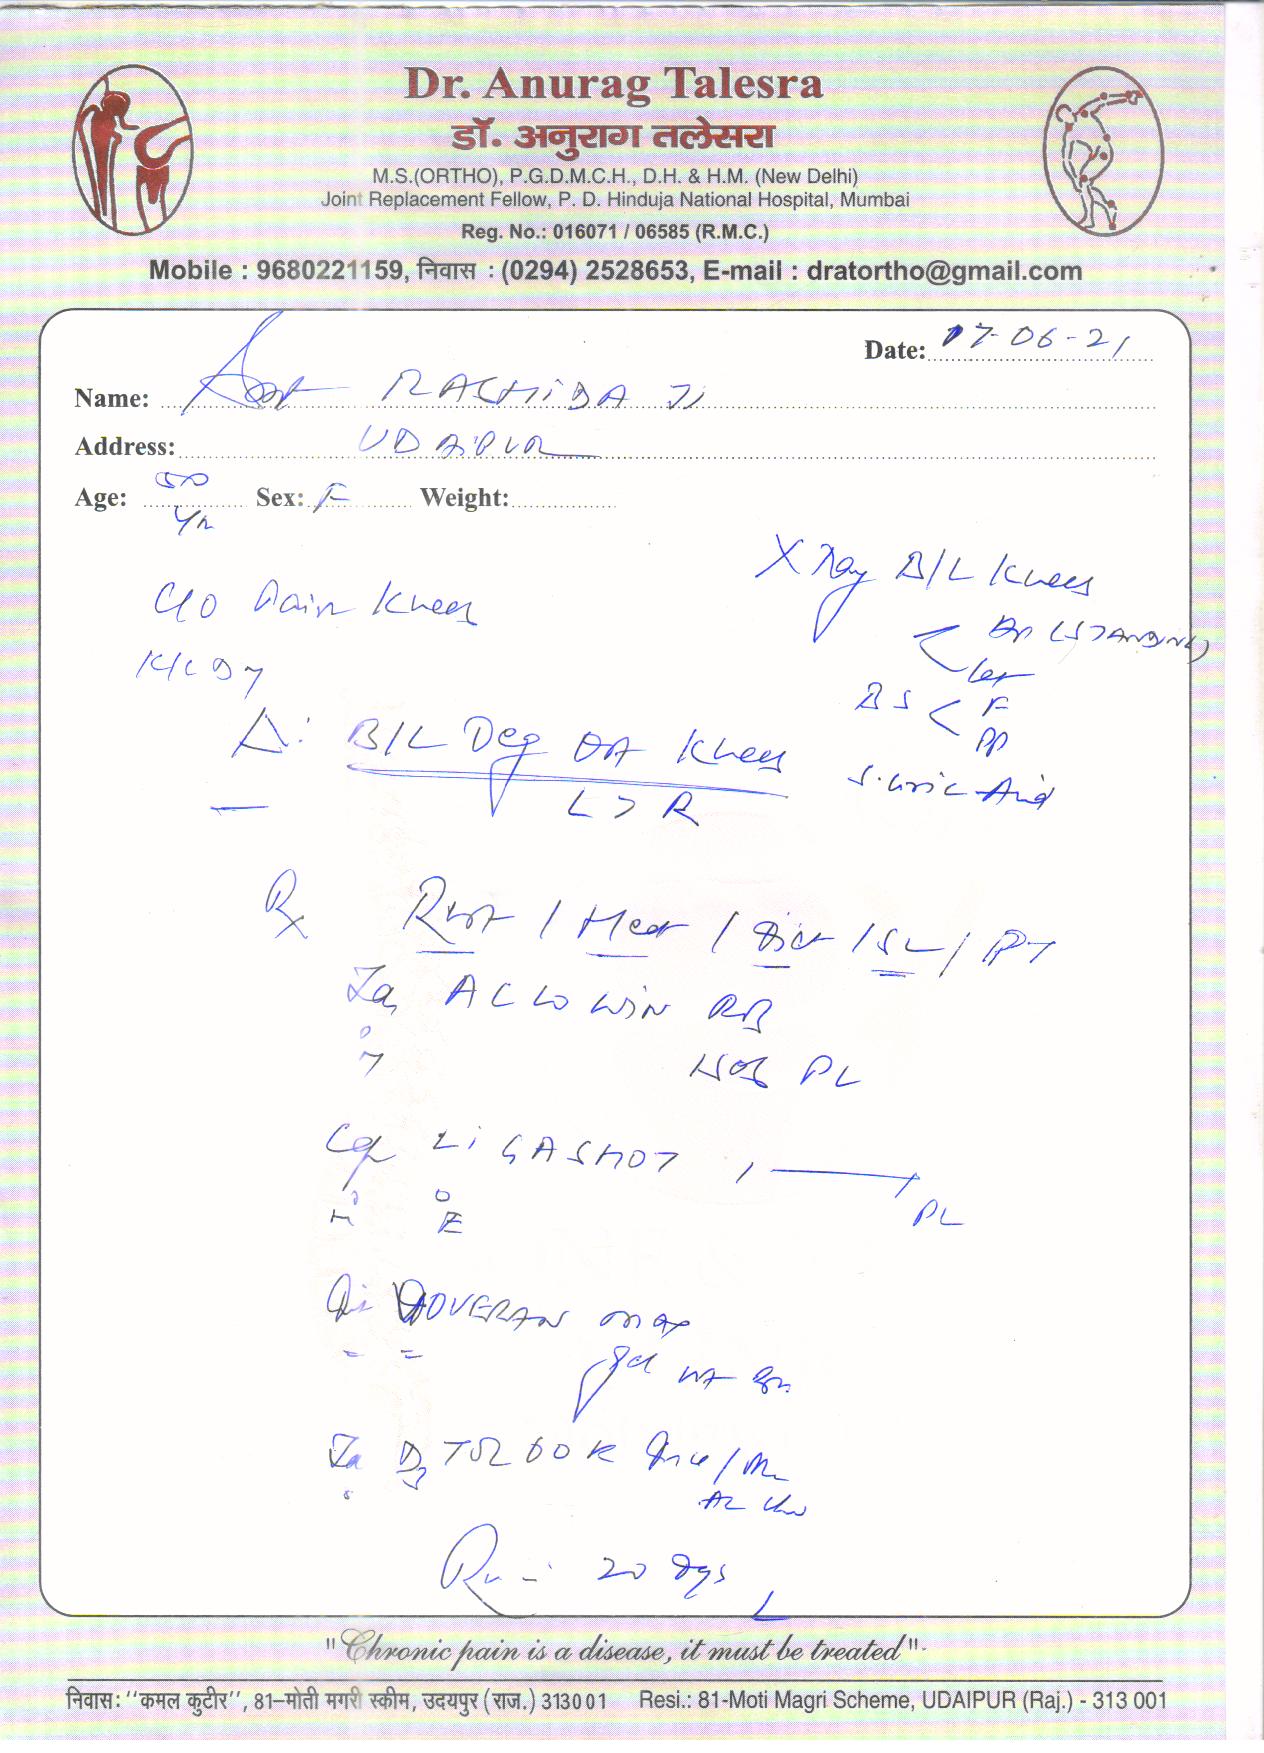 Dr. Anurag Talesra
डॉ. अनुराग तलेसरा
M.S.(ORTHO), P.G.D.M.C.H., D.H. & H.M. (New Delhi)
Joint Replacement Fellow, P. D. Hinduja National Hospital, Mumbai
Reg. No.: 016071 / 06585 (R.M.C.)
Mobile : 9680221159, निवास : (0294) 2528653, E-mail : dratortho@gmail.com
Date: 07-06-21
Name: RASHIDA JI
Address: UDAIPUR
Age: 50 Yr Sex: F Weight:
X Ray B/L Knees
C/O Pain Knees
AP (STANDING)
Lat
BS < F
PP
Δ: B/L Deg OA Knees
S. Uric Acid
L > R
Rx Rest / Heat / Diet / SL / PT
ACLOWIN RB
PL
Cap LIGASHOT
PL
DOVERAN max
gel
60 K
20 dys
"Chronic pain is a disease, it must be treated".
निवास: ''कमल कुटीर'', 81–मोती मगरी स्कीम, उदयपुर (राज.) 313001 Resi.: 81-Moti Magri Scheme, UDAIPUR (Raj.) - 313 001